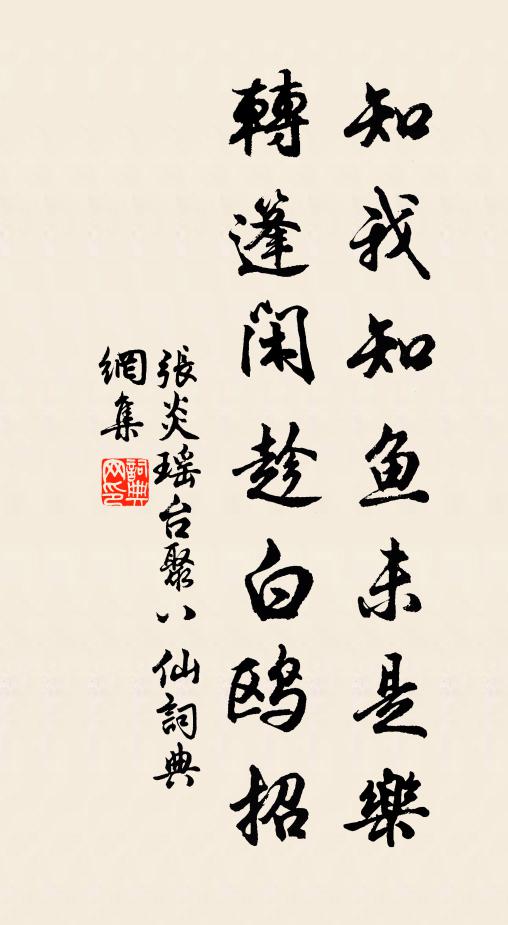 知我知鱼未是樂
轉蓬閑趁白鸥招
張炎瑶台聚八仙詞典
網集
詞典网印